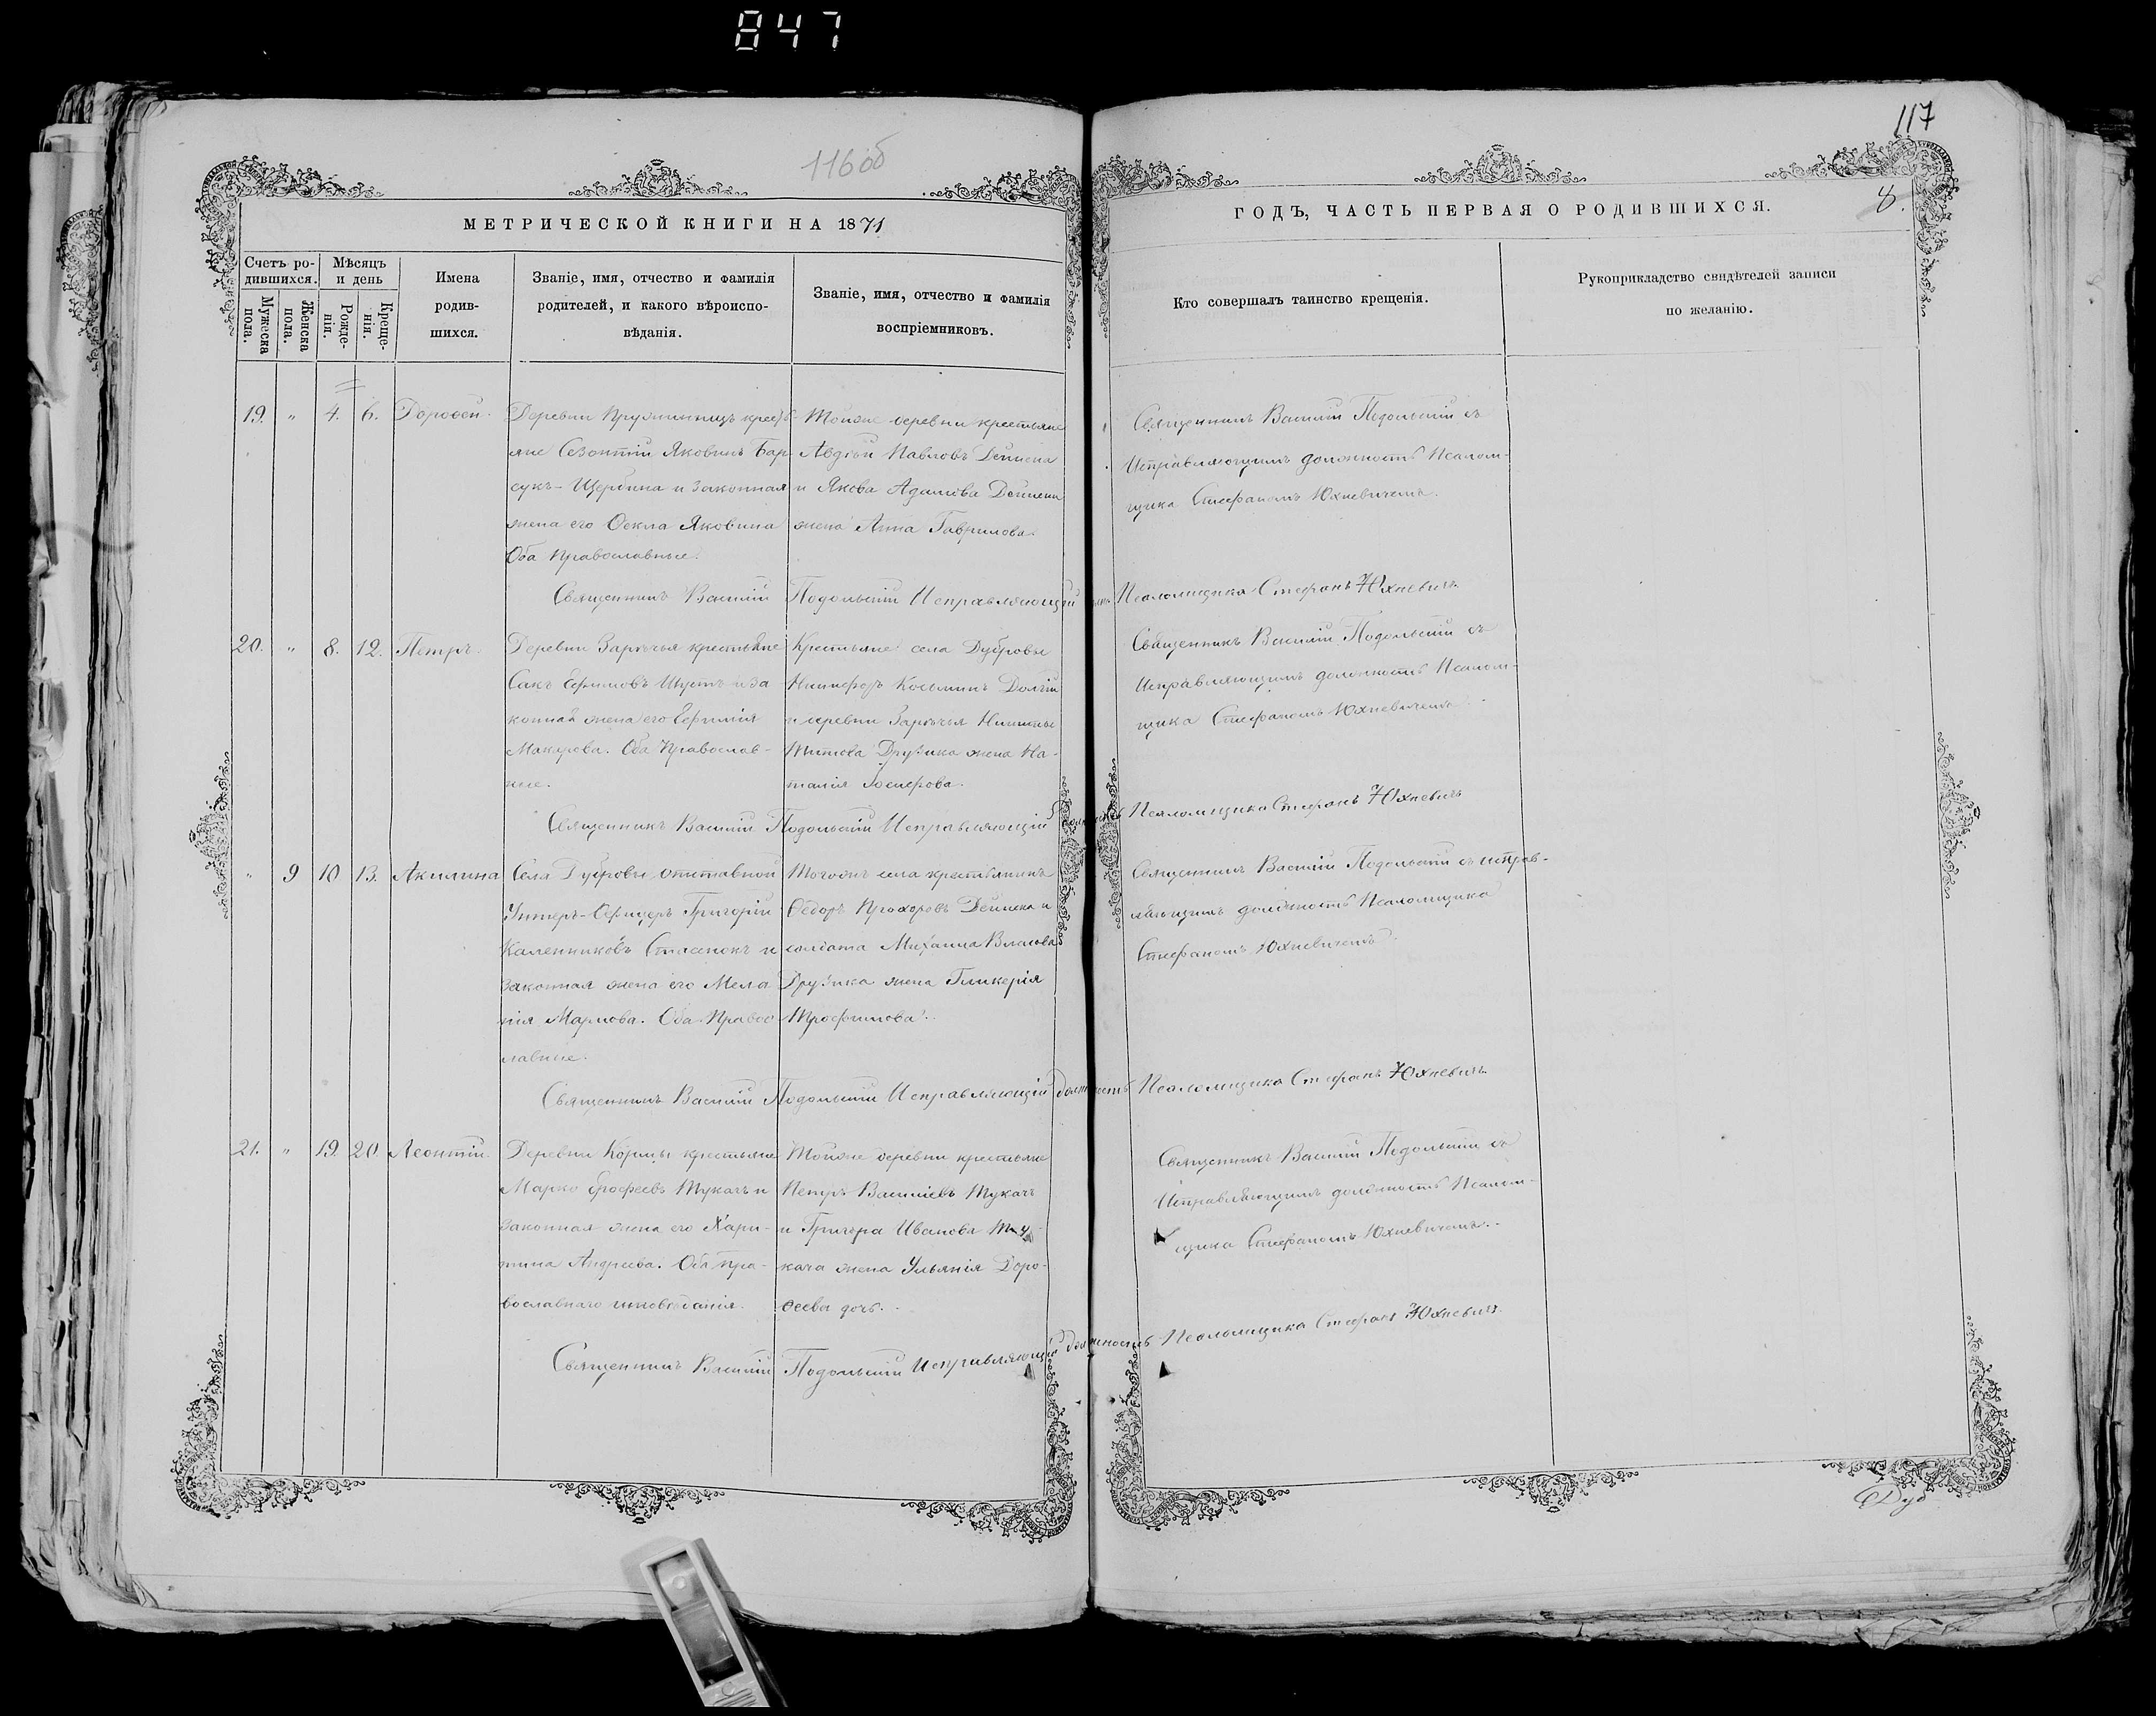 847
116 об
117
МЕТРИЧЕСКОЙ КНИГИ НА 1871
ГОДЪ, ЧАСТЬ ПЕРВАЯ О РОДИВШИХСЯ.
8.
Счетъ ро-
дившихся.
Мужеска
пола.
Женска
пола.
Мѣсяцъ
и день
Рожде-
нія.
Креще-
нія.
Имена
родив-
шихся.
Званіе, имя, отчество и фамилія
родителей, и какого вѣроиспо-
вѣданія.
Званіе, имя, отчество и фамилія
воспріемниковъ.
Кто совершалъ таинство крещенія.
Рукоприкладство свидѣтелей записи
по желанію.
19. " 4. 6. Дороѳей.
Деревни крестья-
яне Сезонтій Яковинъ Бар-
сукъ-Щербина и законная
жена его Ѳекла Яковина
Оба Православные.
Тойже деревни крестьяне
Авдѣй Павловъ Дейнека
и Якова Адамова Дейнеки
жена Анна Гаврилова.
Священникъ Василій Подольскій съ
Исправляющимъ должность Псалом-
щика Стефаномъ Юхневичемъ.
Священникъ Василій Подольскій Исправляющій Псаломщика Стефанъ Юхневичъ
20. " 8. 12. Петръ.
Деревни Зарѣчья крестьяне
Сакъ Ефимовъ Шустъ и за-
конная жена его Ефимія
Макарова. Оба Православ-
ные.
Крестьяне села Дубровы
Никифоръ Косьминъ Долгій
и деревни Зарѣчья Никиты
Титова Друзика жена На-
талія
Священникъ Василій Подольскій съ
Исправляющимъ должность Псалом-
щика Стефаномъ Юхневичемъ.
Священникъ Василій Подольскій Исправляющій должность Псаломщика Стефанъ Юхневичъ
" 9 10 13. Акилина
Села Дубровы отставной
Унтеръ-Офицеръ Григорій
Каленниковъ Стасенокъ и
законная жена его Мела
нія Маркова. Оба Правос
лавные.
Тогожъ села крестьянинъ
Ѳедоръ Прохоровъ Дейнека и
солдата Михаила Власова
Друзика жена Гликерія
Трофимова.
Священникъ Василій Подольскій съ исправ-
ляющимъ должность Псаломщика
Стефаномъ Юхневичемъ.
Священникъ Василій Подольскій Исправляющій должность Псаломщика Стефанъ Юхневичъ
21. " 19. 20 Леонтій
Деревни Кормы крестьяне
Марко Ерофеевъ Тукачъ и
законная жена его Хари-
тина Андреева. Оба пра-
вославнаго исповѣданія.
Тойже деревни крестьяне
Петръ Василіевъ Тукачъ
и Григора Иванова Ту-
кача жена Ульянія Доро-
ѳеева дочь.
Священникъ Василій Подольскій съ
Исправляющимъ должность Псалом-
щика Стефаномъ Юхневичемъ.
Священникъ Василій Подольскій Исправляющій должность Псаломщика Стефанъ Юхневичъ
Дуб